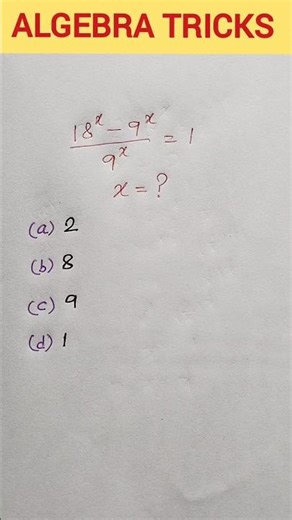 ALGEBRA TRICKS
18^x - 9^x
9^x
= 1
x = ?
(a) 2
(b) 8
(c) 9
(d) 1